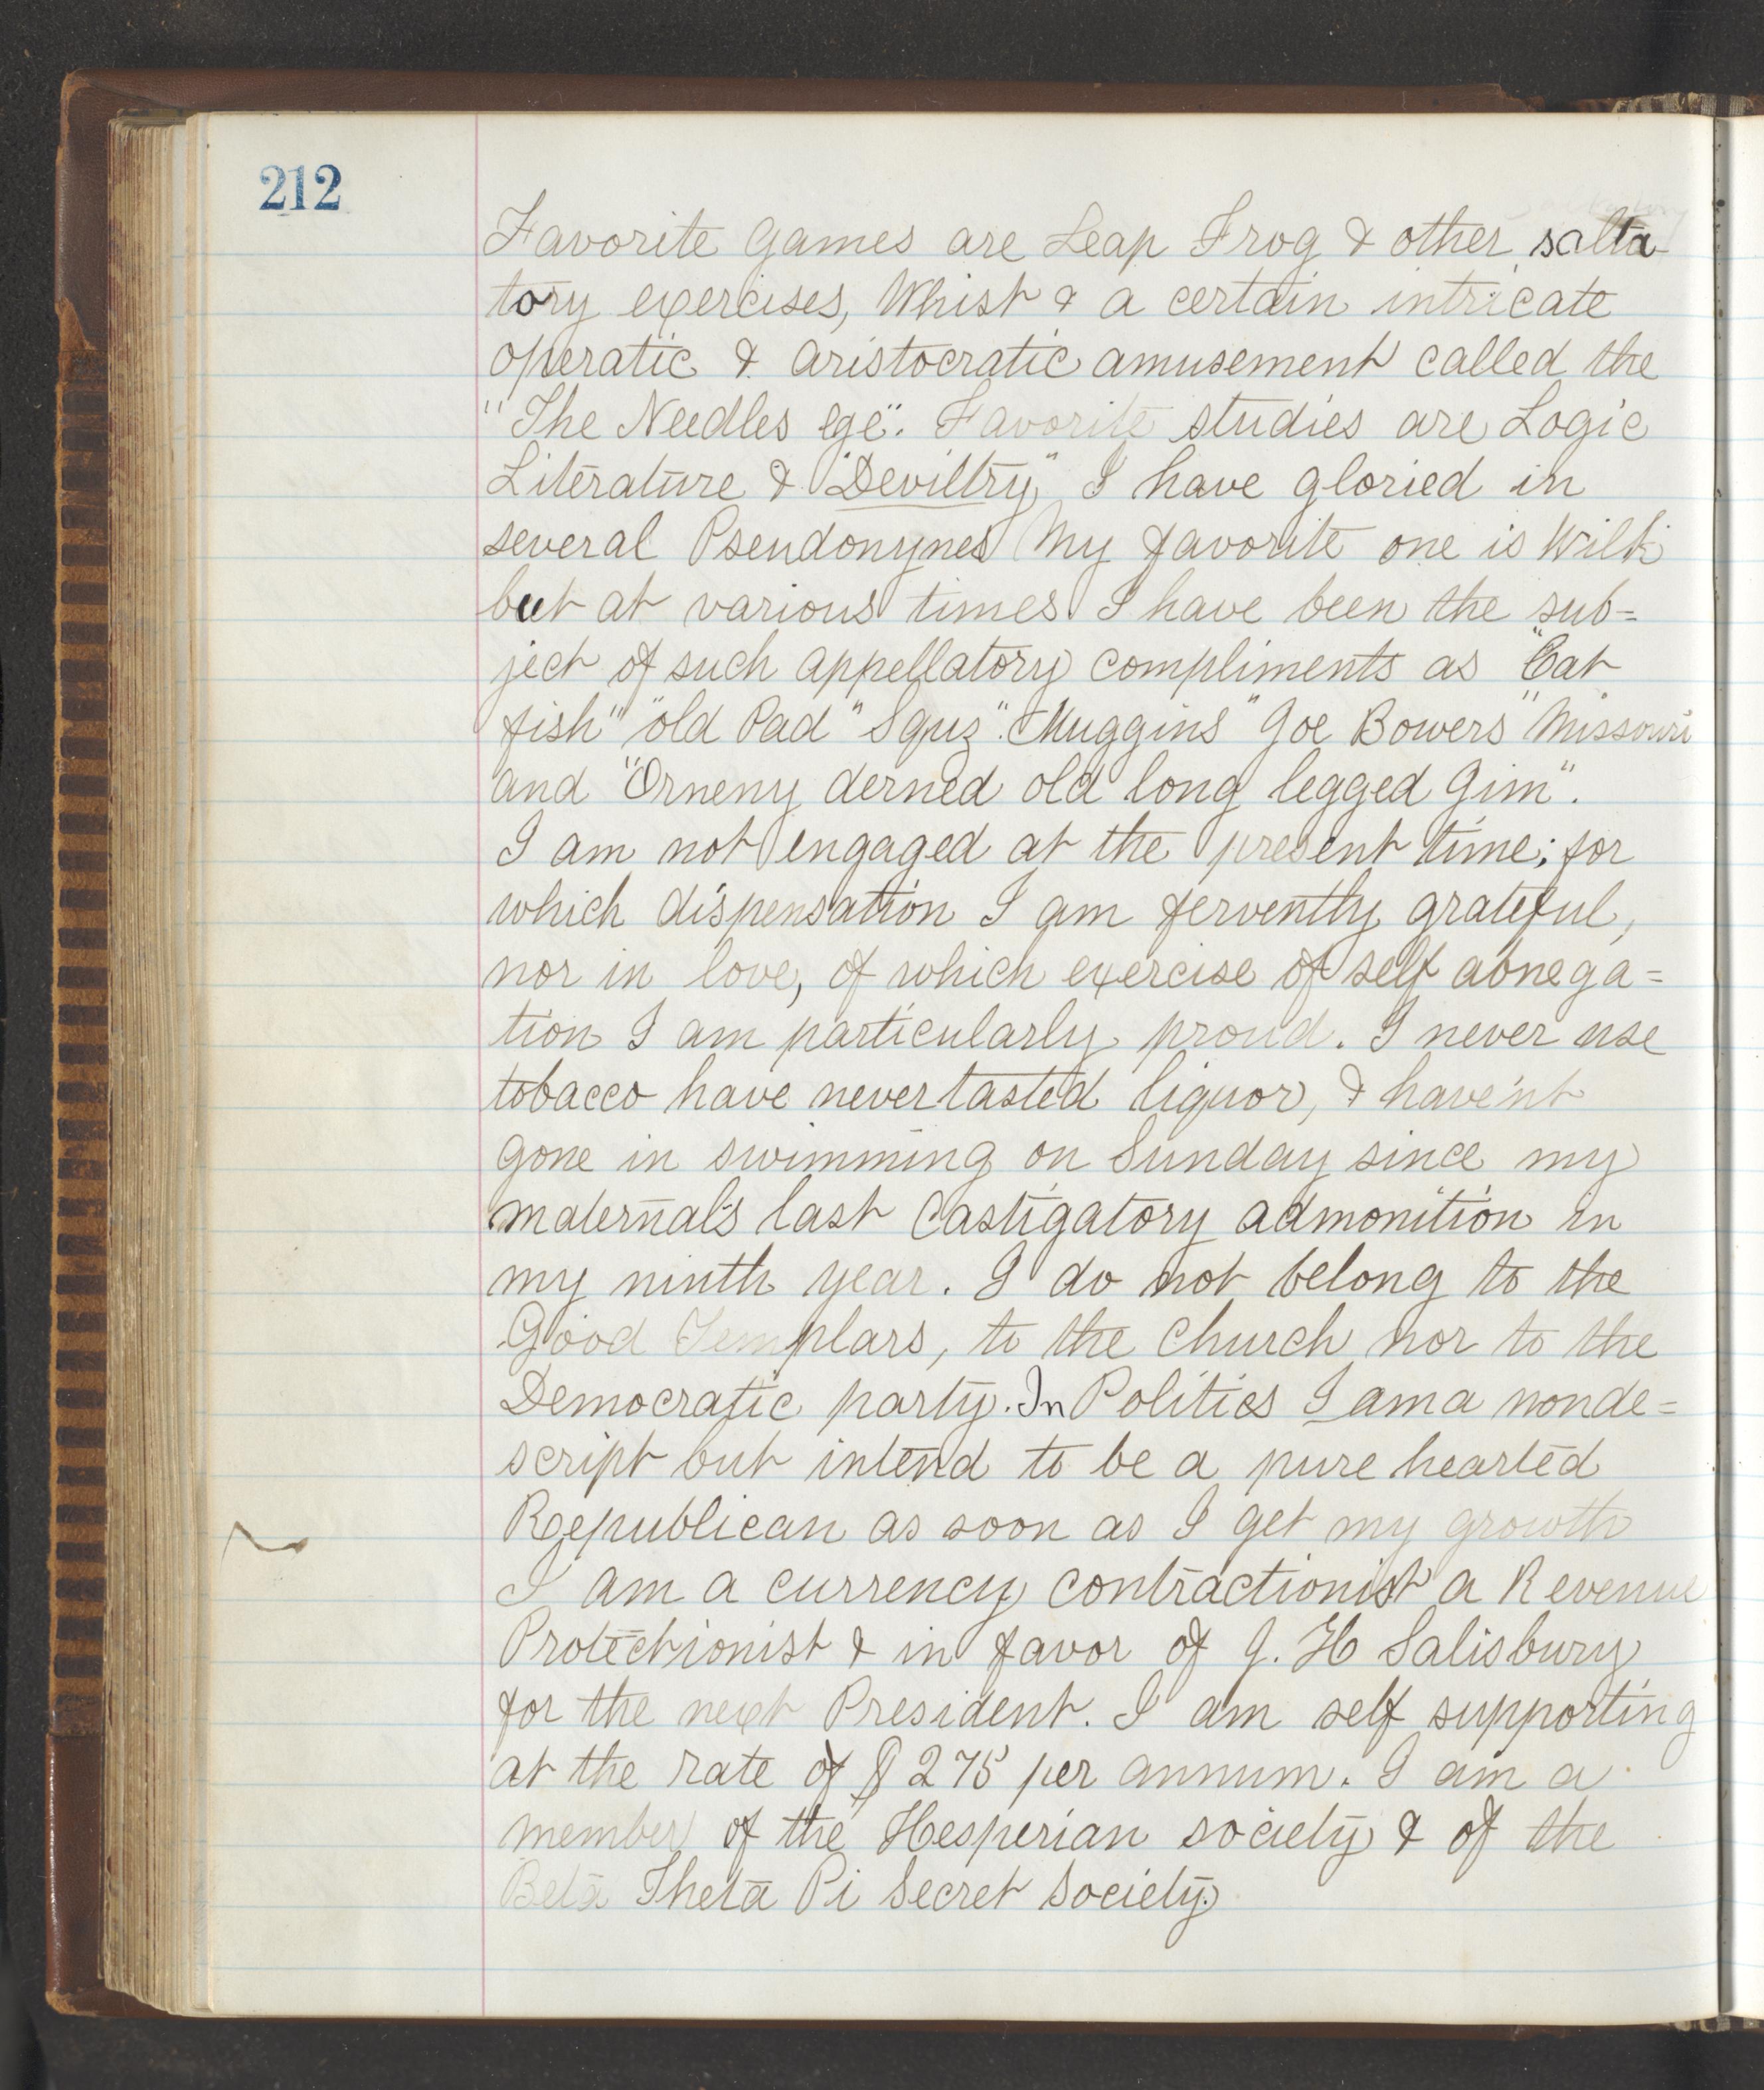 212
Favorite Games are Leap Frog & other salta-
tory exercises, Whist & a certain intricate
operatic & aristocratic amusement called the
"The Needles eye". Favorite studies are Logic
Literature & "Deviltry" I have gloried in
several Pseudonynes My favorite one is Wilk
but at various times I have been the sub=
ject of such appellatory compliments as "Cat
fish" "old Pad" "Squz" "Muggins" Joe Bowers" Missouri
and "Orneny derned old long legged Jim".
I am not engaged at the present time; for
which dispensation I am fervently grateful,
nor in love, of which exercise of self abnega=
tion I am particularly proud. I never use
tobacco have never tasted liquor, & have'nt
gone in swimming on Sunday since my
maternal's last Castigatory admonition in
my ninth year. I do not belong to the
Good Templars, to the Church nor to the
Democratic party. In Politics I am a nonde=
script but intend to be a pure hearted
Republican as soon as I get my growth
I am a currency contractionist a Revenue
Protectionist & in favor of J. H Salisbury
for the next President. I am self supporting
at the rate of $275 per annum. I am a
member of the Hesperian society & of the
Beta Theta Pi Secret Society.